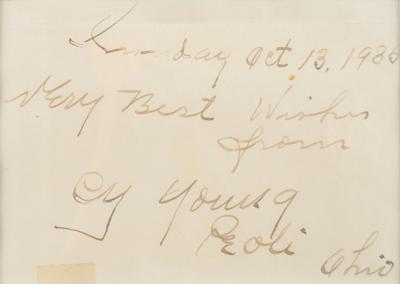 Sunday Oct 13, 1935
Very Best Wishes
from
Cy Young
Peoli
Ohio